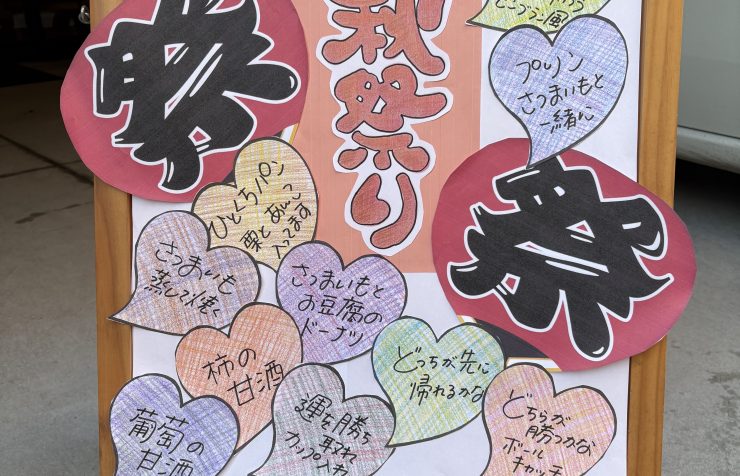 秋祭り
祭
祭
どこブラン風
プリン
さつまいもと
一緒に
ひとくちパン
栗とあんこ
入ってます
さつまいも
蒸して焼く
さつまいもと
お豆腐の
ドーナツ
柿の
甘酒
どっちが先に
帰れるかな
葡萄の
甘酒
運を勝ち
取れ
カップイン
どちらが
勝つかな
ボール
キャッチ